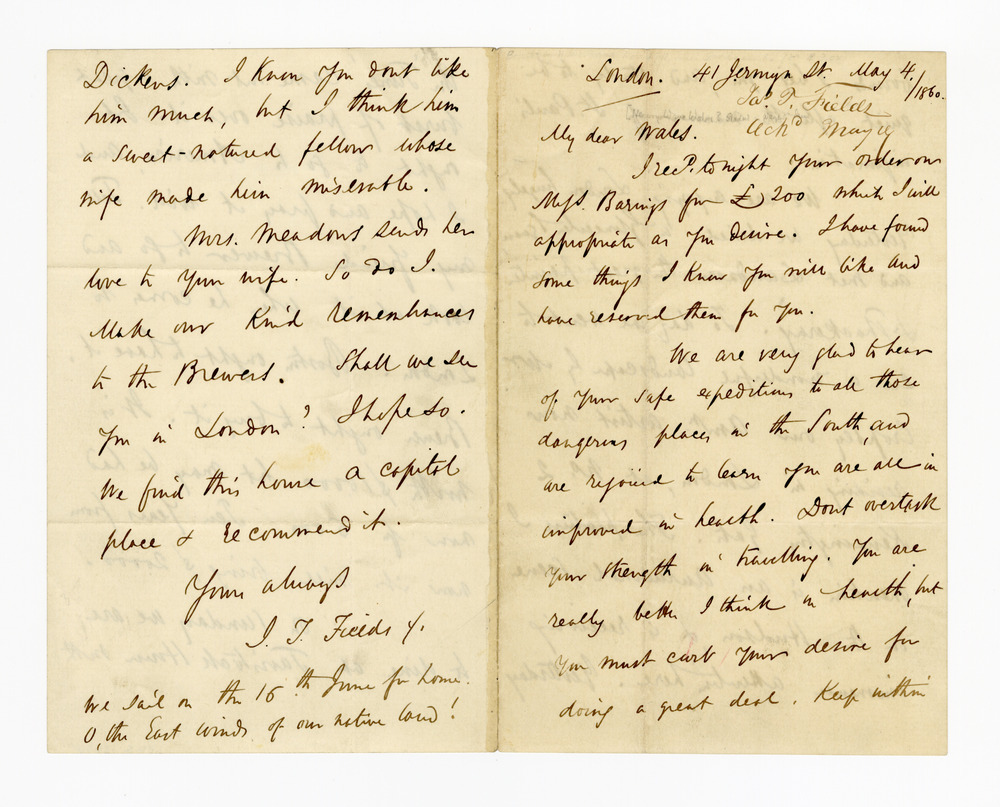 London. 41 Jermyn St. May 4./1860.
Jas. T. Fields
Ackd May 19
My dear Wales.
I recd. to night your order on
Messs. Barings for £200 which I will
appropriate as you desire. I have found
some things I know you will like and
have reserved them for you.
We are very glad to hear
of your safe expeditions to all those
dangerous places in the South, and
are rejoiced to learn you are all in
improved in health. Dont overtask
your strength in travelling. You are
really better I think in health, but
you must curb your desire for
doing a great deal. Keep within
Dickens. I know you dont like
him much, but I think him
a sweet-natured fellow whose
wife made him miserable.
Mrs. Meadows sends her
love to your wife. So do I.
Make our kind remembrances
to the Brewers. Shall we see
you in London? I hope so.
We find this house a capital
place & recommend it.
Yours always
J. T. Fields
We sail on the 16th June for home.
O, the East winds of our native land!